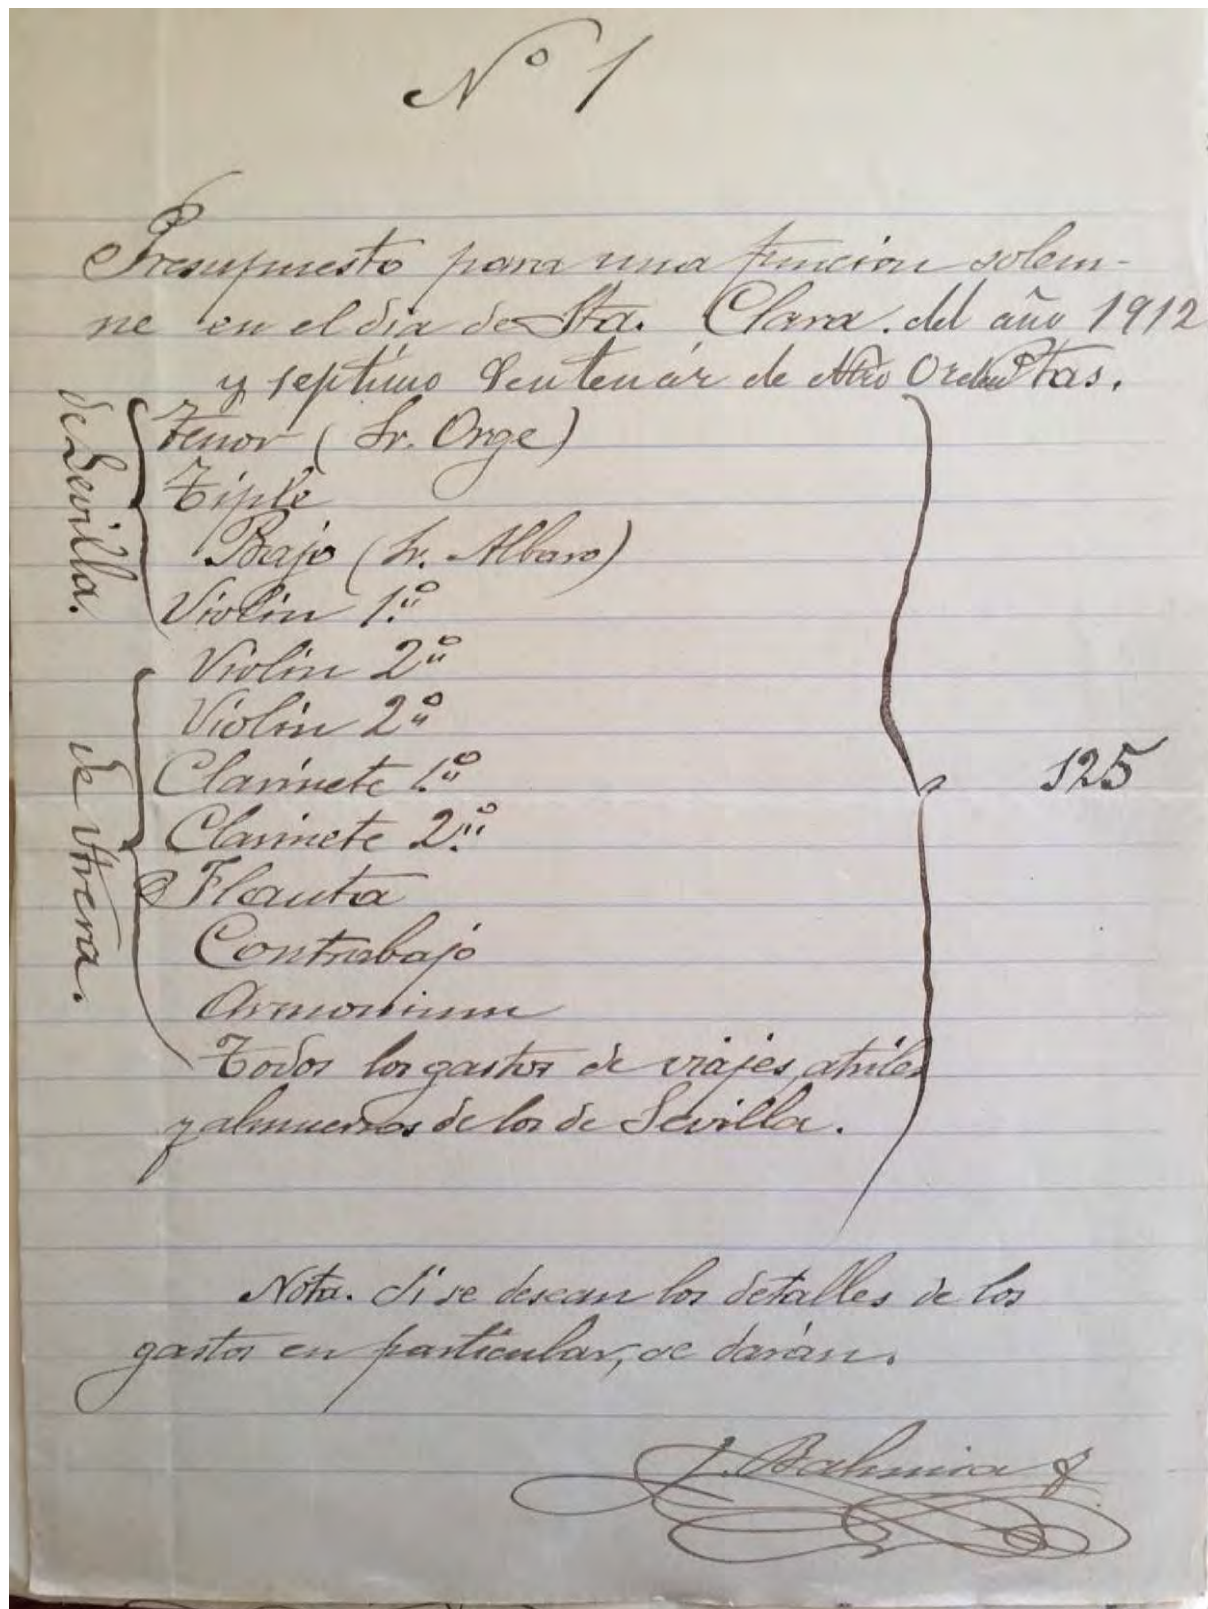 Nº 1
Presupuesto para una funcion solem-
ne en el dia de Sta. Clara. del año 1912
y septimo Centenár de Orden Ptas.
de Sevilla.
Tenor (Sr. Orge)
Tiple
Bajo (Sr. Albaro)
Violin 1º
de Utrera.
Violin 2º
Violin 2º
Clarinete 1º
Clarinete 2º
Flauta
Contrabajo
Armonium
125
Todos los gastos de viajes, atriles
y almuerzos de los de Sevilla.
Nota. Si se desean los detalles de los
gastos en particular, se darán.
J.